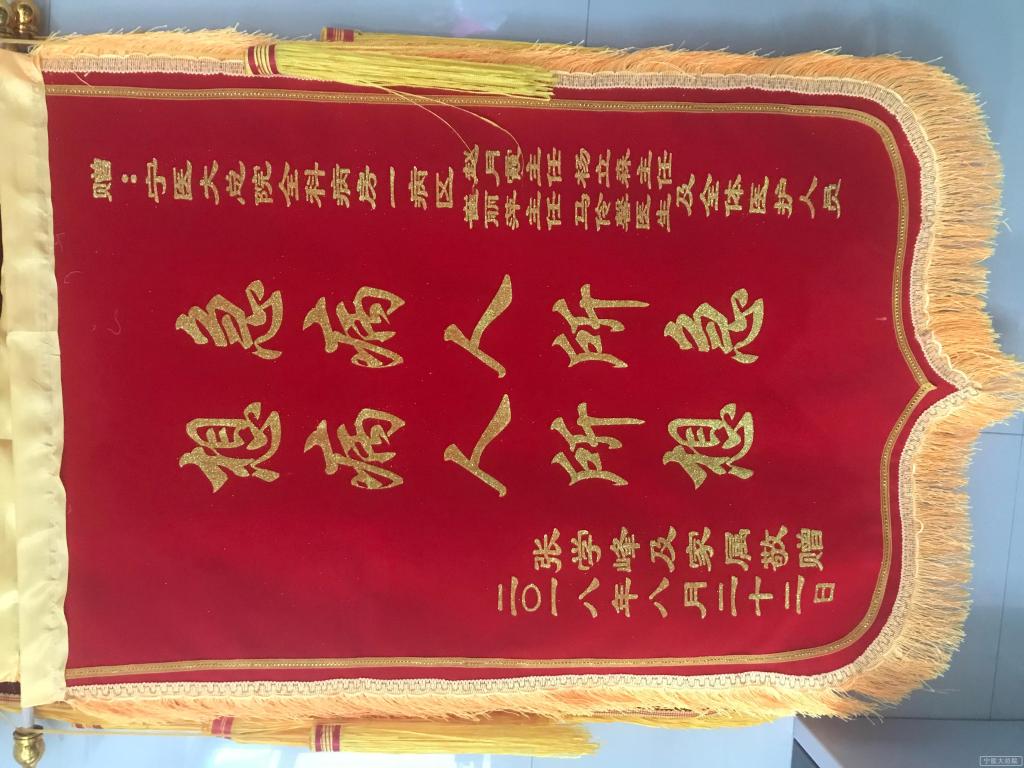 赠：宁医大总院全科病房一病区
赵月霞主任 杨立 主任
丽萍主任 马伶翠医生
及全体医护人员
急病人所急
想病人所想
张学峰及家属敬赠
二〇一八年八月二十二日
宁医大总院